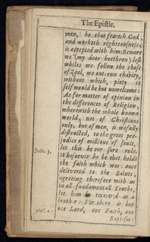 The Epistle.
men, he that feareth God,
and worketh righteousness,
is accepted with him. Beware
we (my dear brethren) lest
whiles we follow the chase
of zeal, we out-run charity,
without which, piety it
self would be but unwelcome:
As for matter of opinion in
the differences of Religion,
wherewith the whole known
world, not of Christians
only, but of men, is wofully
distracted, to the great pre-
judice of millions of souls,
let this be our sure rule;
Whosoever he be that holds
the faith which was once
delivered to the Saints,
agreeing therefore with us
in all fundamentall Truths,
let him be received as a
brother: For there is but
one Lord, one Faith, one
Jude 3.